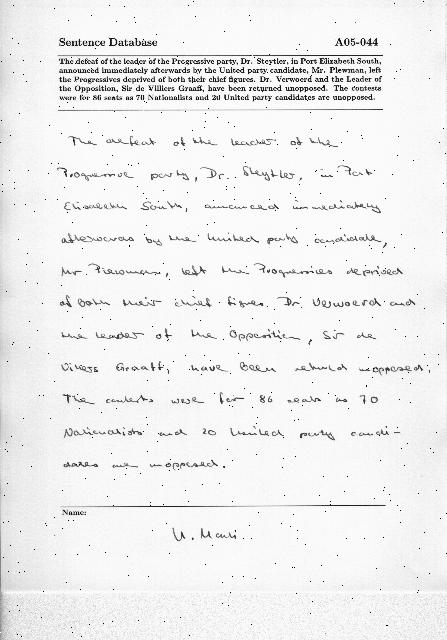 Sentence Database A05-044
The defeat of the leader of the Progressive party, Dr. Steytler, in Port Elizabeth South,
announced immediately afterwards by the United party candidate, Mr. Plewman, left
the Progressives deprived of both their chief figures. Dr. Verwoerd and the Leader of
the Opposition, Sir de Villiers Graaff, have been returned unopposed. The contests
were for 86 seats as 70 Nationalists and 20 United party candidates are unopposed.
The defeat of the leader of the
Progressive party, Dr. Steytler, in Port
Elizabeth South, announced immediately
afterwards by the United party candidate,
Mr. Plewman, left the Progressives deprived
of both their chief figures. Dr. Verwoerd and
the leader of the Opposition, Sir de
Villiers Graaff, have been returned unopposed.
The contests were for 86 seats as 70
Nationalists and 20 United party candi-
dates are unopposed.
Name: